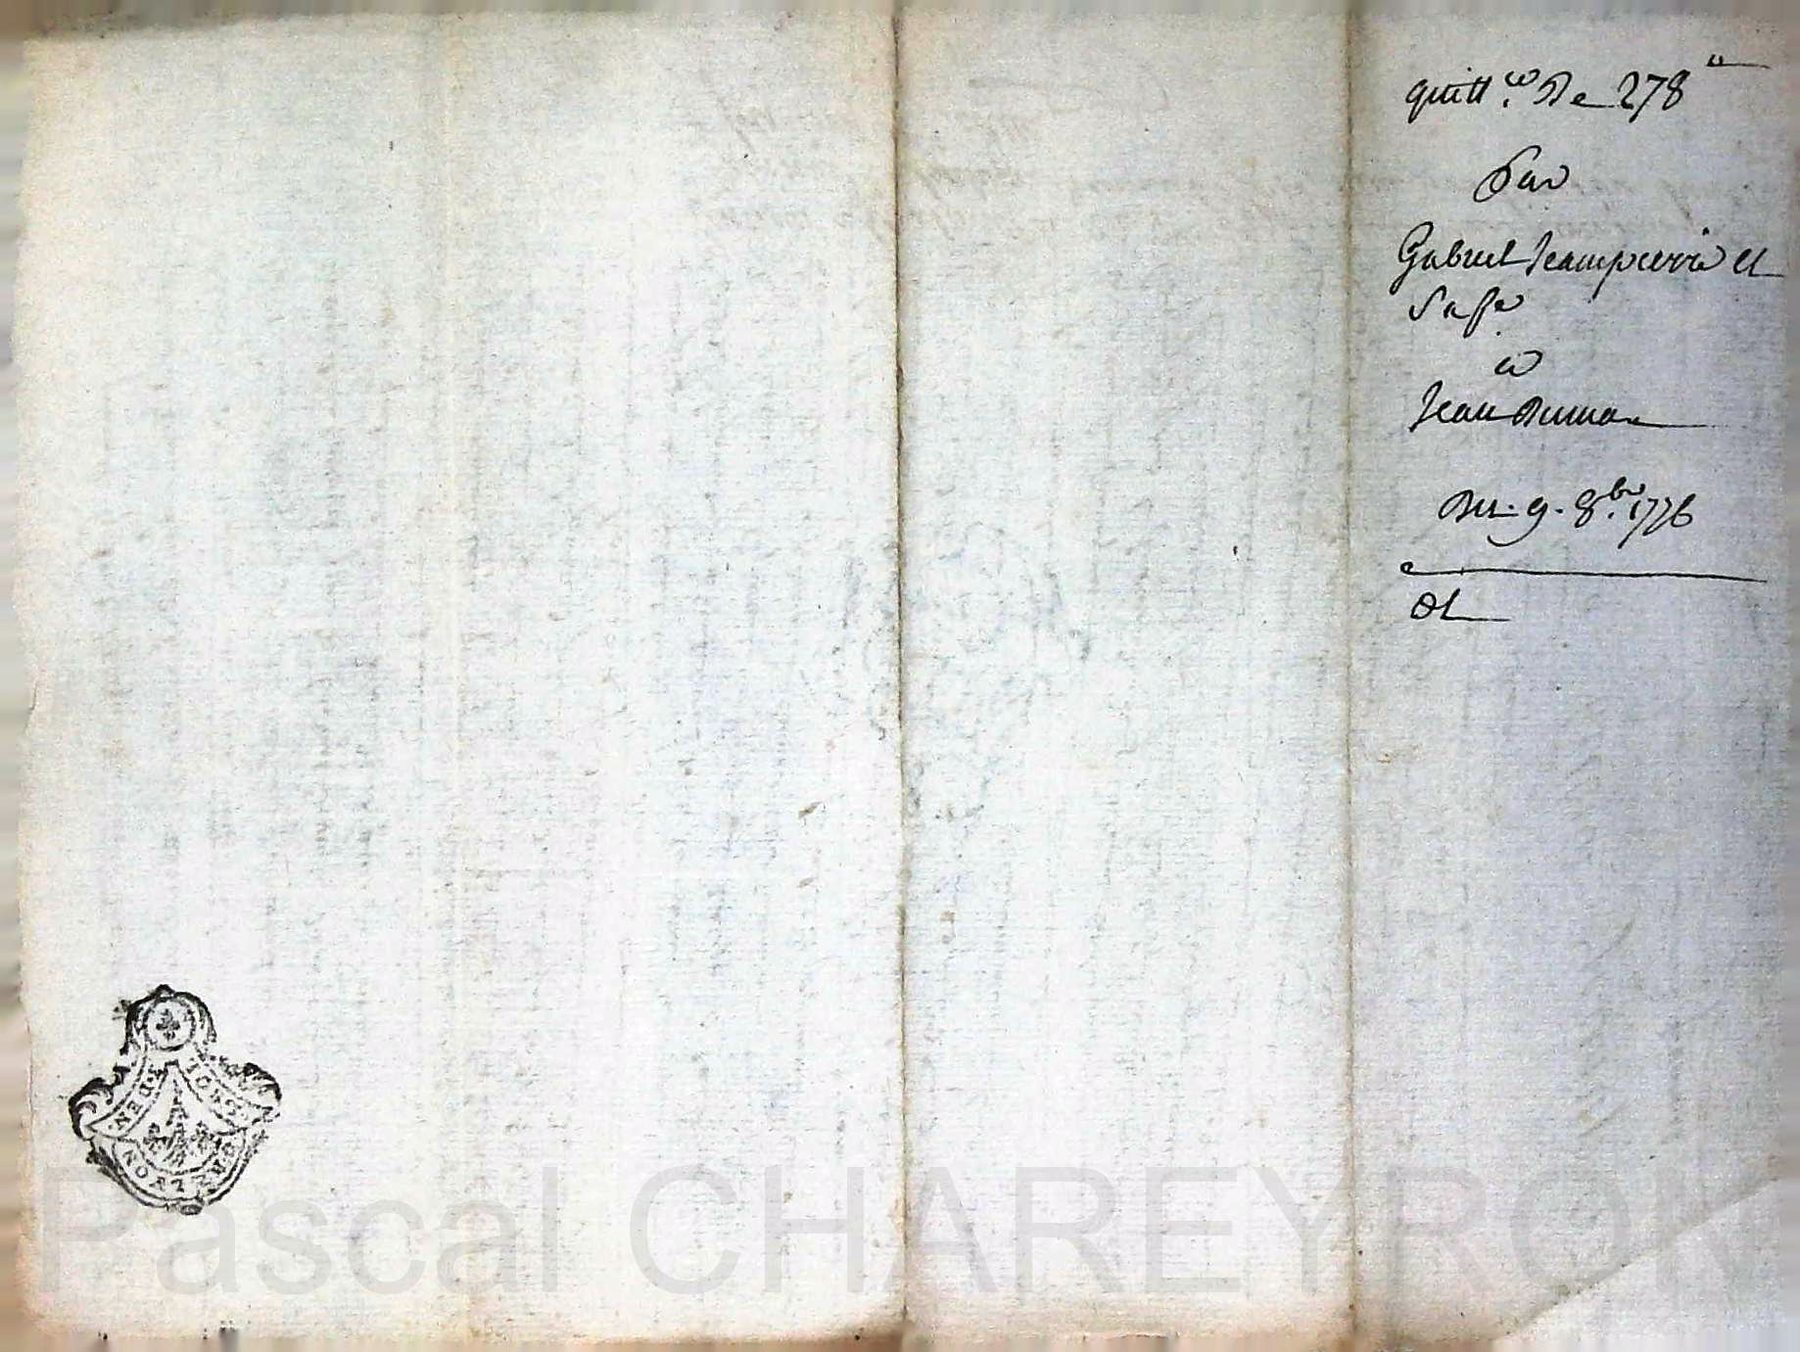 quitt.ce De 278 ll
Par
Gabriel Jeanpierre et
Sasse
a
Jean Dumas
Du. 9. 8.bre 1776
DL
2. DEN
Pascal CHAREYRON